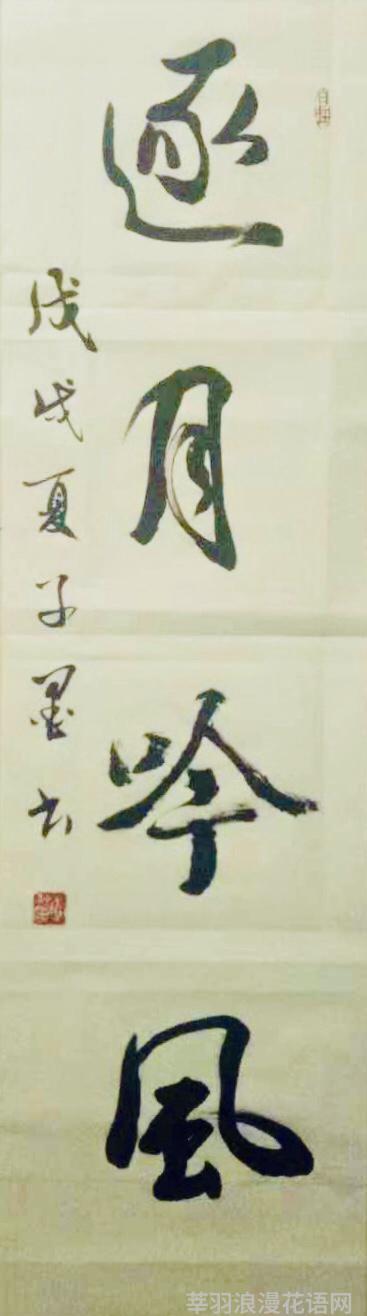 逐月吟風
戊戌夏子墨书
莘羽浪漫花语网